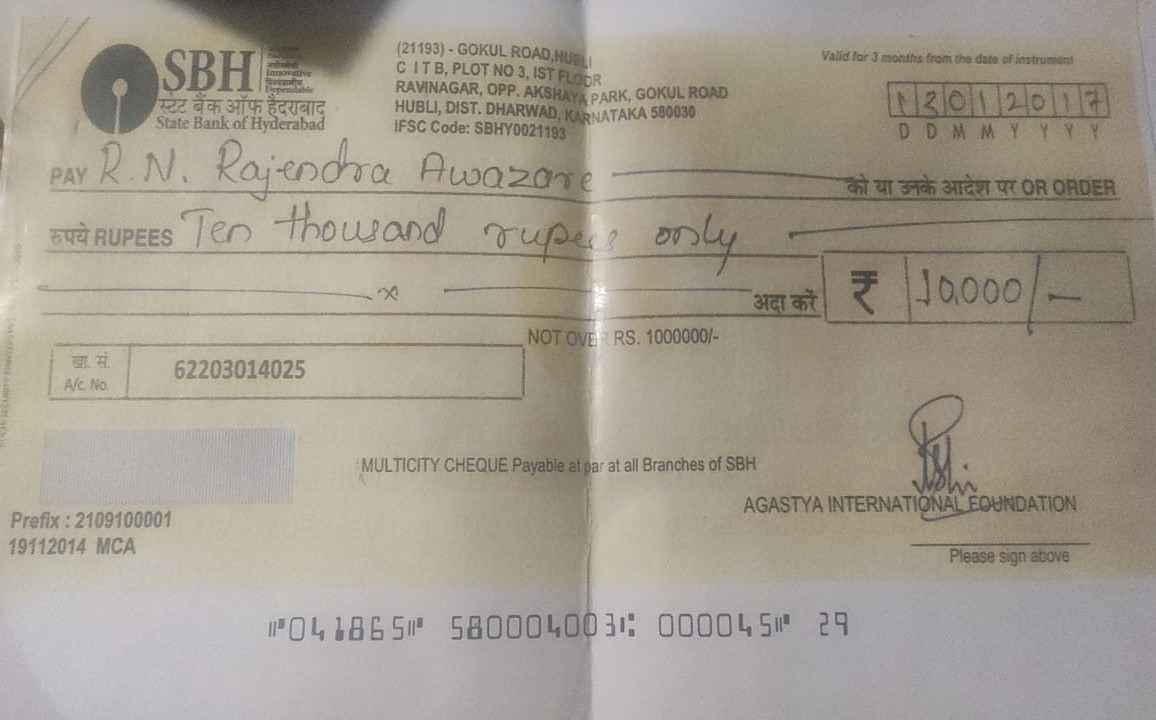 SBH
Innovative
Dependable
स्टेट बैंक ऑफ हैदराबाद
State Bank of Hyderabad
(21193) - GOKUL ROAD,HUBLI
C I T B, PLOT NO 3, IST FLOOR
RAVINAGAR, OPP. AKSHAYA PARK, GOKUL ROAD
HUBLI, DIST. DHARWAD, KARNATAKA 580030
IFSC Code: SBHY0021193
Valid for 3 months from the date of instrument
12012017
D D M M Y Y Y Y
PAY R.N. Rajendra Awazare को या उनके आदेश पर OR ORDER
रुपये RUPEES Ten thousand rupees only
x अदा करें ₹ 10,000/-
NOT OVER RS. 1000000/-
खा. सं.
A/c. No. 62203014025
MULTICITY CHEQUE Payable at par at all Branches of SBH
AGASTYA INTERNATIONAL FOUNDATION
Prefix : 2109100001
19112014 MCA
Please sign above
⑈041865⑈ 580004003⑆ 000045⑈ 29